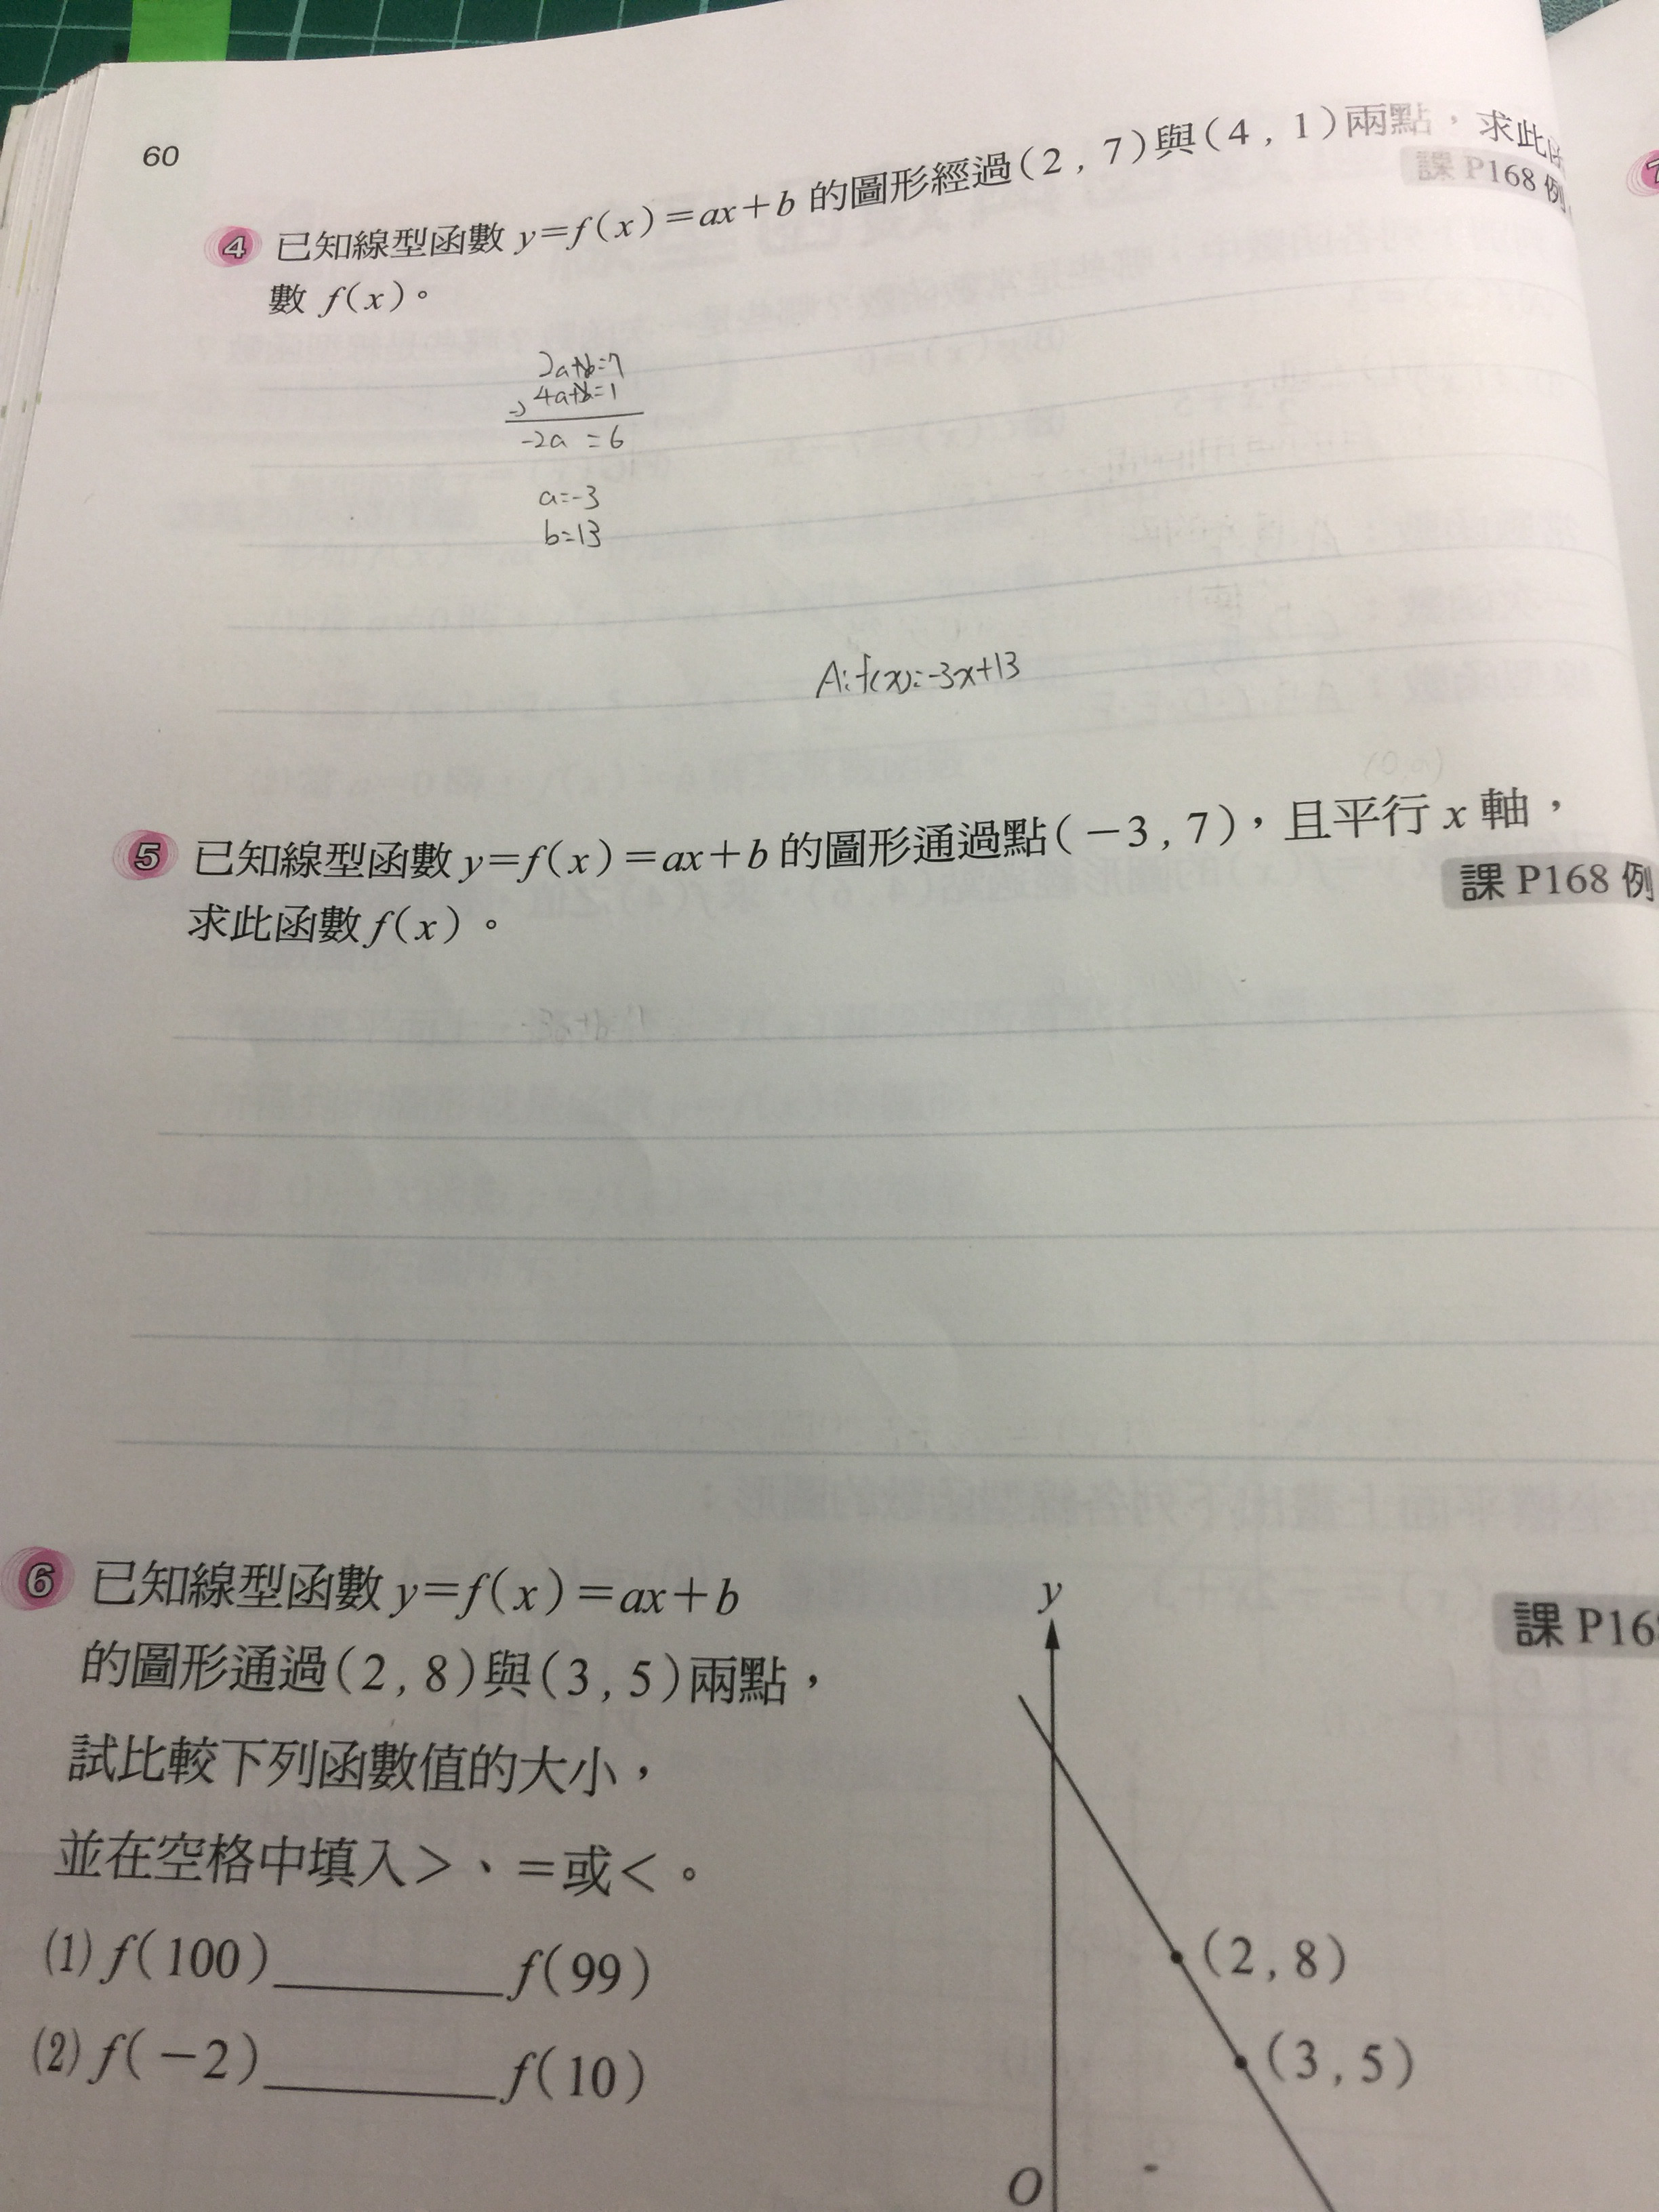 60
④ 已知線型函數 y=f(x)=ax+b 的圖形經過(2,7)與(4,1)兩點,求此
課 P168 例
數 f(x)。
2a+b=7
-) 4a+b=1
-2a =6
a=-3
b=13
A:f(x)=-3x+13
(0,a)
⑤ 已知線型函數 y=f(x)=ax+b 的圖形通過點(-3,7),且平行 x 軸,
課 P168 例
求此函數 f(x)。
⑥ 已知線型函數 y=f(x)=ax+b
y
課 P168
的圖形通過(2,8)與(3,5)兩點,
試比較下列函數值的大小,
並在空格中填入>、=或<。
(1) f(100)________f(99)
(2,8)
(2) f(-2)________f(10)
(3,5)
O